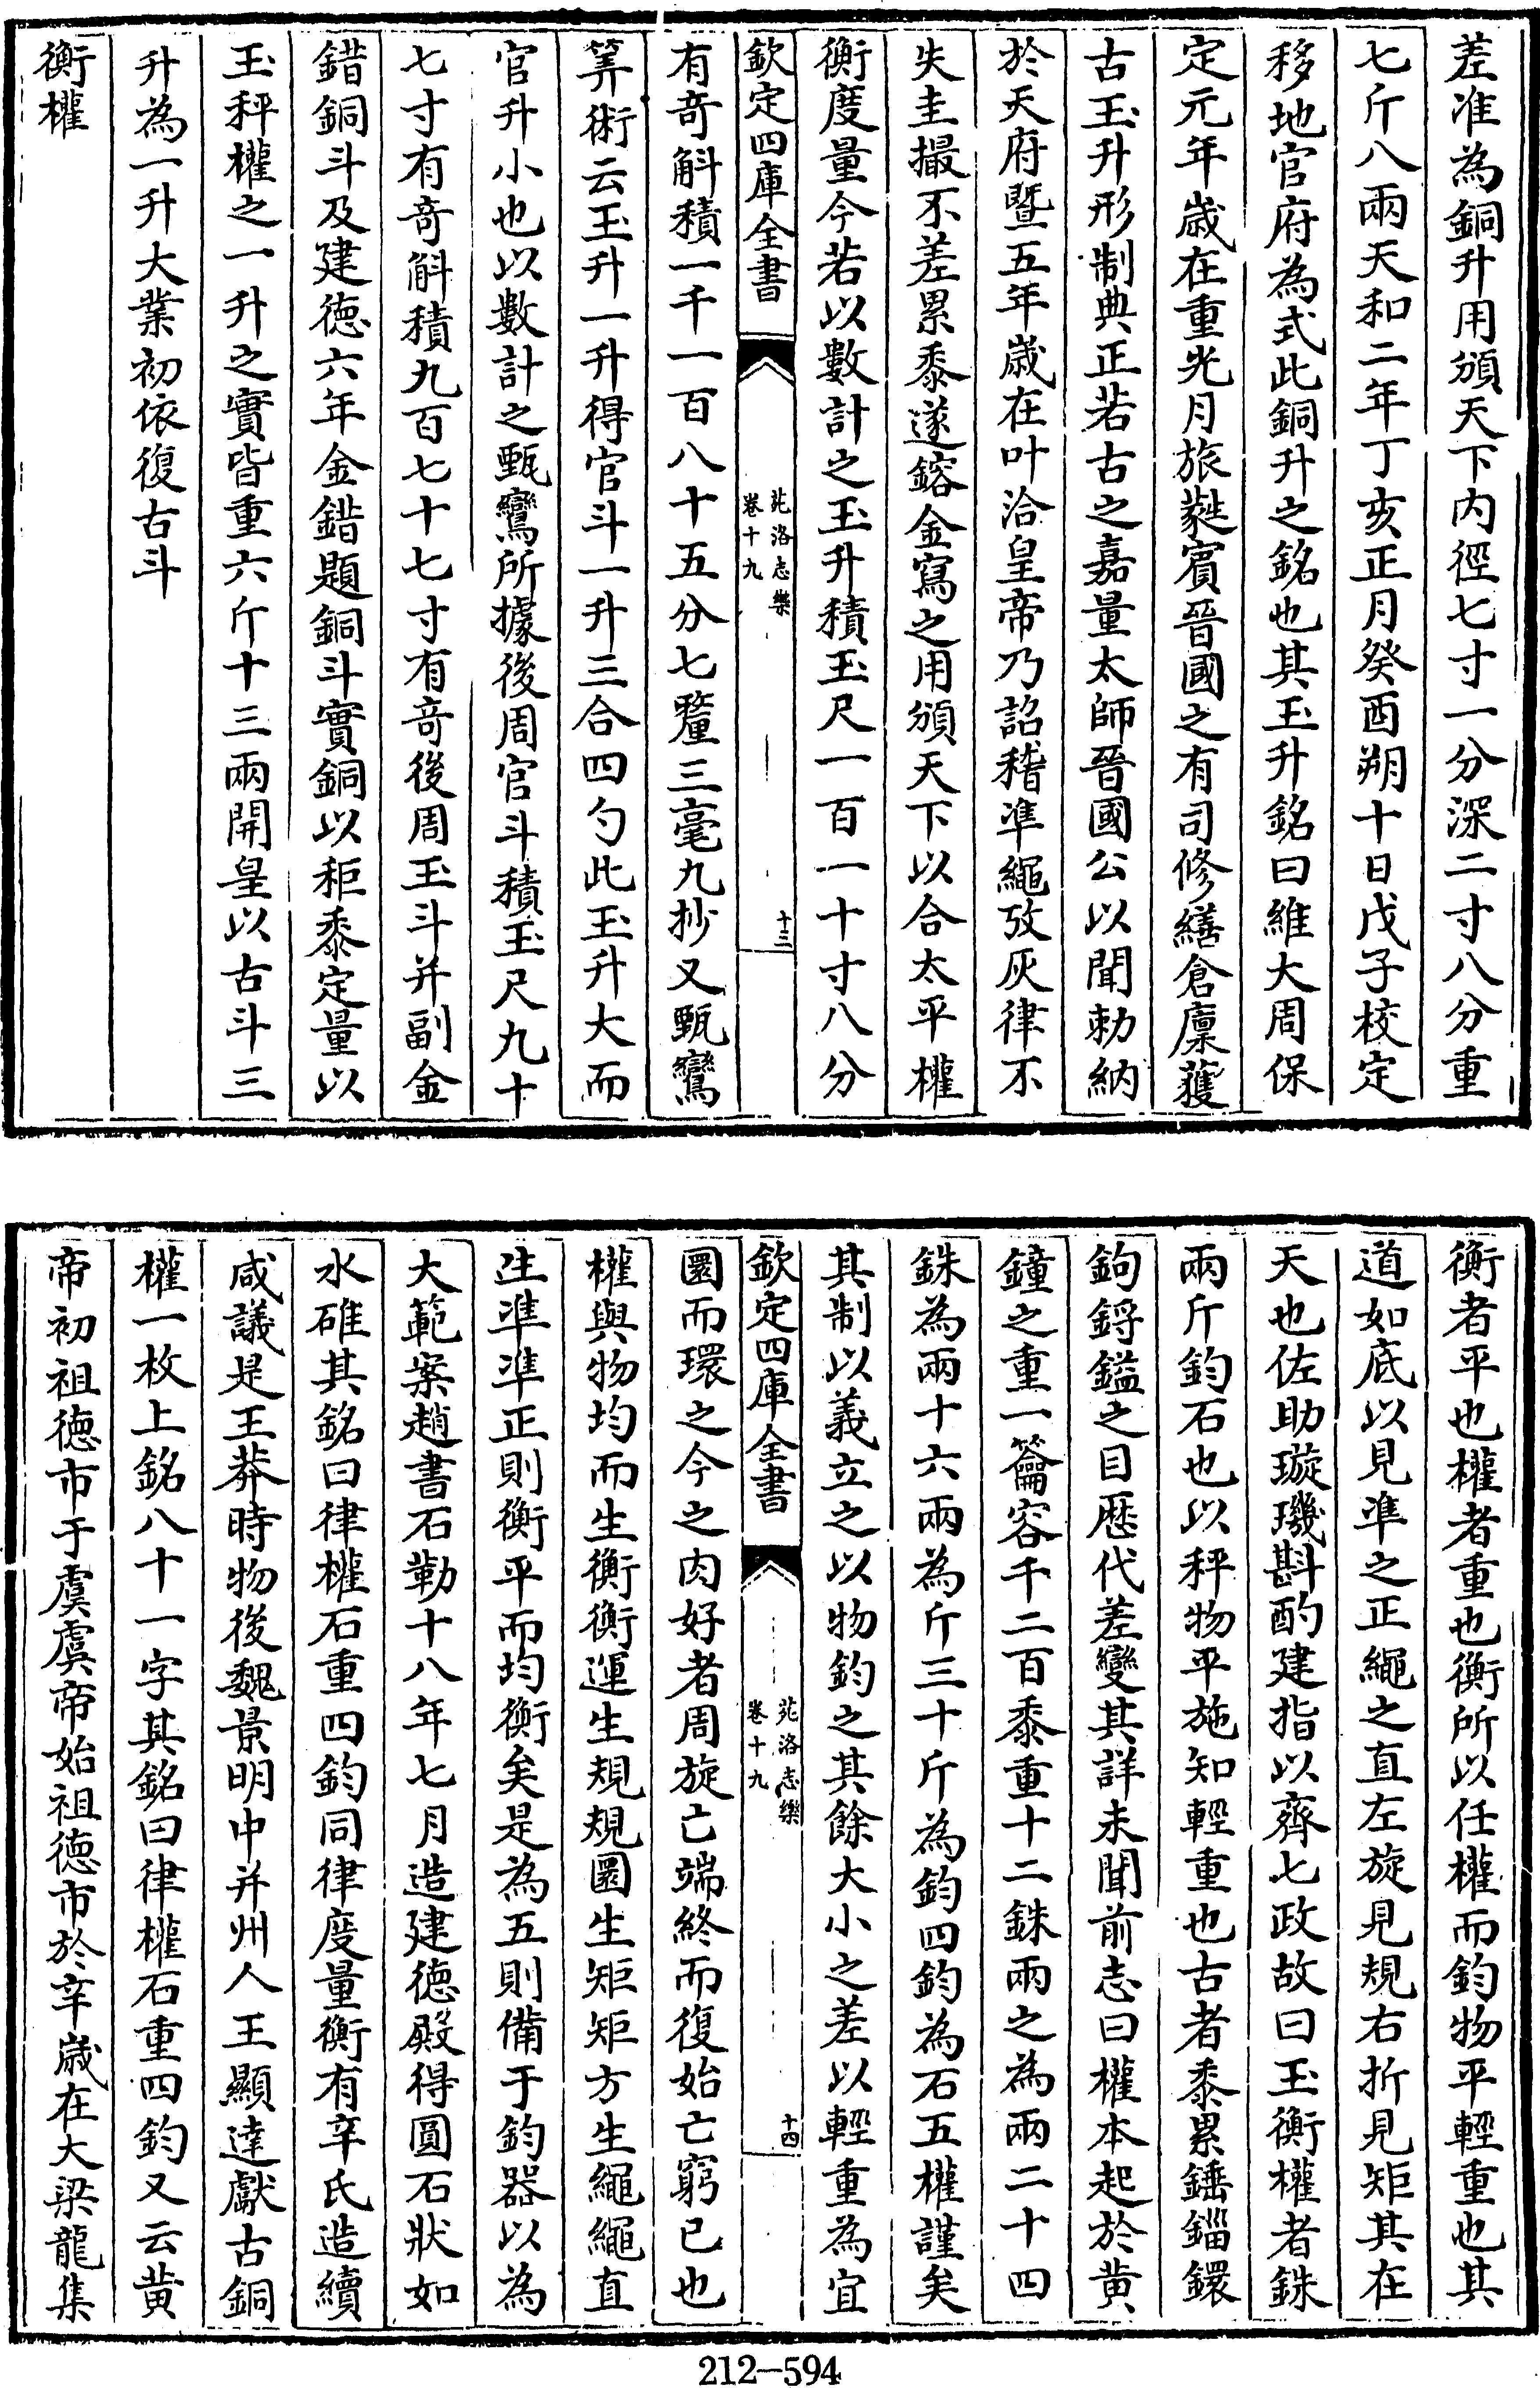 差准為銅升用頒天下内徑七寸一分深二寸八分重
七斤八兩天和二年丁亥正月癸酉朔十日戊子校定
移地官府為式此銅升之銘也其玉升銘曰維大周保
定元年歲在重光月旅蕤賓晉國之有司修繕倉廩獲
古玉升形制典正若古之嘉量太師晉國公以聞勅納
於天府暨五年歲在叶洽皇帝乃詔稽準繩攷灰律不
失圭撮不差累黍遂鎔金寫之用頒天下以合太平權
衡度量今若以數計之玉升積玉尺一百一十寸八分
欽定四庫全書
苑洛志樂
卷十九
十三
有竒斛積一千一百八十五分七釐三毫九抄又甄鸞
筭術云玉升一升得官斗一升三合四勺此玉升大而
官升小也以數計之甄鸞所據後周官斗積玉尺九十
七寸有竒斛積九百七十七寸有竒後周玉斗并副金
錯銅斗及建德六年金錯題銅斗實銅以秬黍定量以
玉秤權之一升之實皆重六斤十三兩開皇以古斗三
升為一升大業初依復古斗
衡權
衡者平也權者重也衡所以任權而鈞物平輕重也其
道如底以見準之正繩之直左旋見規右折見矩其在
天也佐助璇璣斟酌建指以齊七政故曰玉衡權者銖
兩斤鈞石也以秤物平施知輕重也古者黍累錘錙鐶
鉤鋝鎰之目歷代差變其詳未聞前志曰權本起於黄
鐘之重一籥容千二百黍重十二銖兩之為兩二十四
銖為兩十六兩為斤三十斤為鈞四鈞為石五權謹矣
其制以義立之以物鈞之其餘大小之差以輕重為宜
欽定四庫全書
苑洛志樂
卷十九
十四
圜而環之今之肉好者周旋亡端終而復始亡窮已也
權與物均而生衡衡運生規規圜生矩矩方生繩繩直
生準準正則衡平而均衡矣是為五則備于鈞器以為
大範案趙書石勒十八年七月造建德殿得圓石狀如
水碓其銘曰律權石重四鈞同律度量衡有辛氏造續
咸議是王莽時物後魏景明中并州人王顯達獻古銅
權一枚上銘八十一字其銘曰律權石重四鈞又云黄
帝初祖德市于虞虞帝始祖德市於辛歲在大梁龍集
212-594